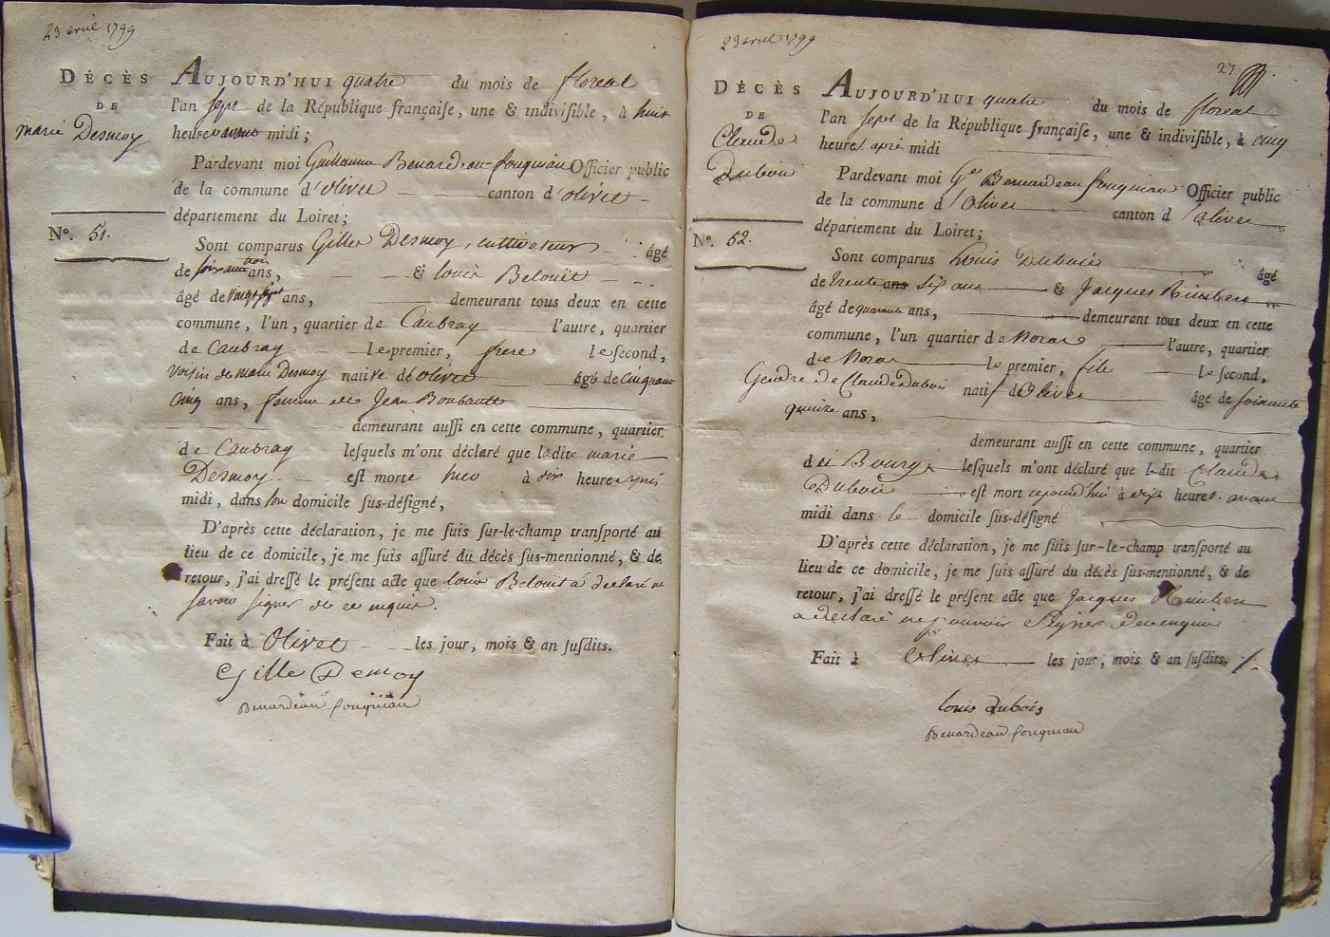 23 avril 1799
DÉCÈS
DE
marie Desmoy
N°. 51.
AUJOURD'HUI quatre du mois de floreal
l'an sept de la République françaiſe, une & indiviſible, à huit
heure midi;
Pardevant moi Guillaume Benardeau fouquiau Officier public
de la commune d'olivet canton d'olivet
département du Loiret;
Sont comparus Gille Desmoy, cultivateur âgé
de soixante trois ans, & louis Belouet
âgé de vingt sept ans, demeurant tous deux en cette
commune, l'un, quartier de Caubray l'autre, quartier
de Caubray le premier, frere le ſecond,
voisin de marie Desmoy native de olivet âgé de cinquante
cinq ans, femme de Jean
demeurant auſſi en cette commune, quartier
de Caubray leſquels m'ont déclaré que ladite marie
Desmoy eſt morte hier à six heures après
midi, dans son domicile ſus-déſigné,
D'après cette déclaration, je me ſuis ſur-le-champ tranſporté au
lieu de ce domicile, je me ſuis aſſuré du décès ſus-mentionné, & de
retour, j'ai dreſſé le préſent acte que louis Belouet a declaré ne
savoir signer de ce enquis.
Fait à Olivet les jour, mois & an ſuſdits.
Gille Demoy
Benardeau fouquiau
23 avril 1799
27
DÉCÈS
DE
Claude
Dubois
N°. 52.
AUJOURD'HUI quatre du mois de floreal
l'an sept de la République françaiſe, une & indiviſible, à cinq
heures après midi
Pardevant moi G Benardeau fouquiau Officier public
de la commune d'olivet canton d'olivet
département du Loiret;
Sont comparus Louis Dubois âgé
de trente six ans & Jacques
âgé de quarante ans, demeurant tous deux en cette
commune, l'un quartier de l'autre, quartier
de le premier, fils le ſecond,
Gendre de Claude Dubois natif d'Olivet âgé de soixante
quinze ans,
demeurant auſſi en cette commune, quartier
du Bourg leſquels m'ont déclaré que ledit Claude
Dubois eſt mort aujourd'hui à heures avant
midi dans le domicile ſus-déſigné
D'après cette déclaration, je me ſuis ſur-le-champ tranſporté au
lieu de ce domicile, je me ſuis aſſuré du décès ſus-mentionné, & de
retour, j'ai dreſſé le préſent acte que Jacques
a declaré ne pouvoir signer de ce enquis
Fait à Olivet les jour, mois & an ſuſdits.
louis dubois
Benardeau fouquiau